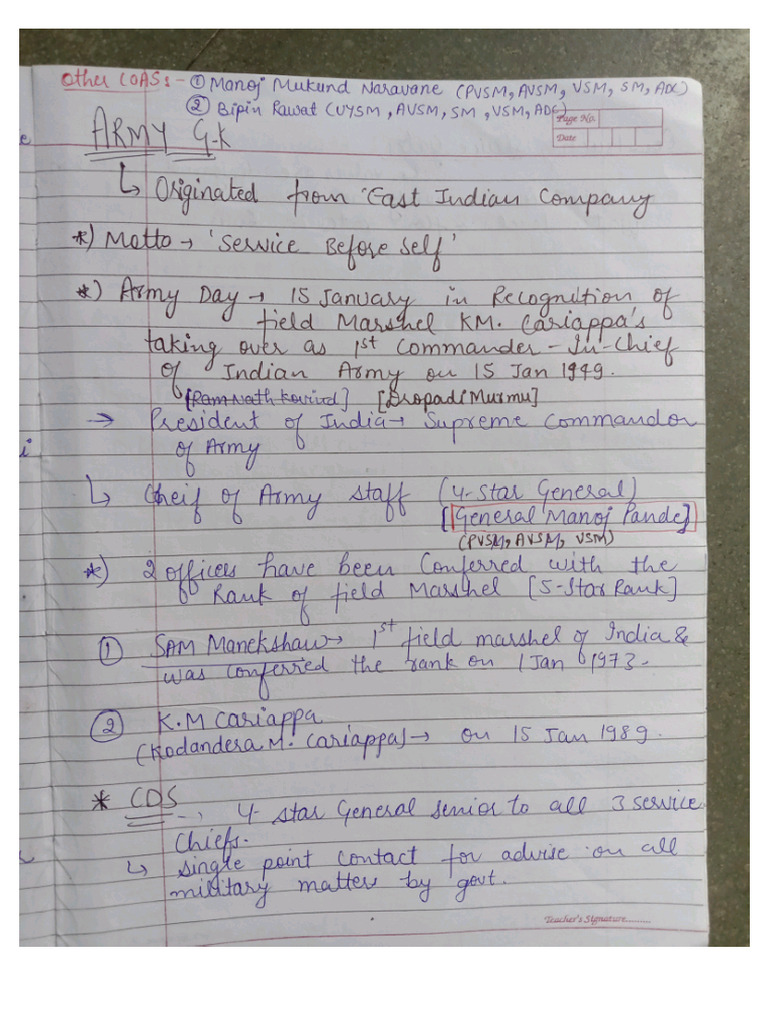 Other COAS:- ① Manoj Mukund Naravane (PVSM, AVSM, VSM, SM, ADC)
② Bipin Rawat (UYSM, AVSM, SM, VSM, ADC)
Page No.
Date
ARMY G.K
↳ Originated from East Indian Company
*) Motto → 'Service Before Self'
*) Army Day → 15 January in Recognition of
field Marshel KM. Cariappa's
taking over as 1st Commander-In-Chief
of Indian Army on 15 Jan 1949.
[Ram Nath Kovind] [Dropadi Murmu]
→ President of India → Supreme Commandor
of Army
↳ Cheif of Army staff (4-Star General)
[General Manoj Pande]
(PVSM, AVSM, VSM)
*) 2 offices have been Conferred with the
Rank of field Marshel [5-Star Rank]
① SAM Manekshaw → 1st field marshel of India &
was conferred the rank on 1 Jan 1973.
② K.M Cariappa
(Kodandera M. Cariappa) → on 15 Jan 1989.
* CDS
→ 4-star General senior to all 3 service
Chiefs.
↳ single point contact for advise on all
military matters by govt.
Teacher's Signature..........